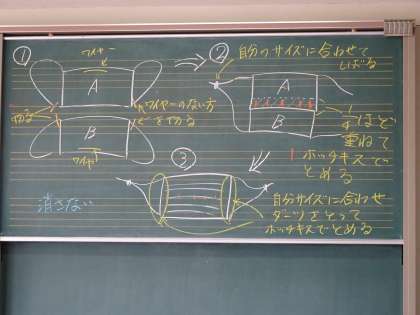 ①
ワイヤー
A
切る
ワイヤーのない方
を切る
B
ワイヤー
②
自分のサイズに合わせて
しばる
A
B
1/4ほど
重ねて
ホッチキスで
とめる
③
自分サイズに合わせ
ダーツをとって
ホッチキスでとめる
消さない